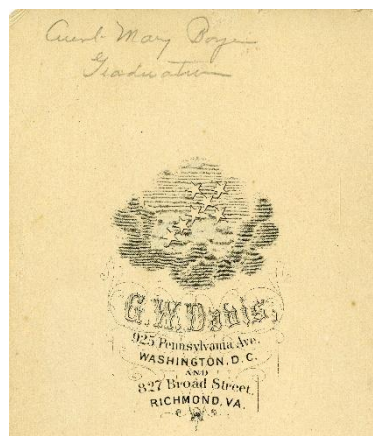 Aunt Mary Boyer
Graduation
G. W. Davis,
925 Pennsylvania Ave.
WASHINGTON, D.C.
AND
827 Broad Street,
RICHMOND, VA.